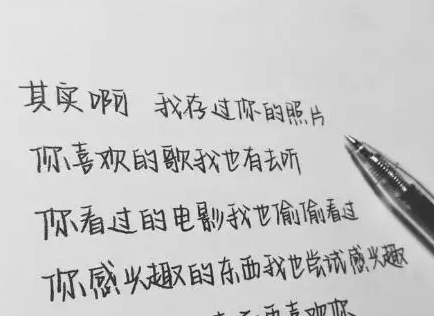 其实啊 我存过你的照片
你喜欢的歌我也有去听
你看过的电影我也偷偷看过
你感兴趣的东西我也尝试感兴趣
喜欢你